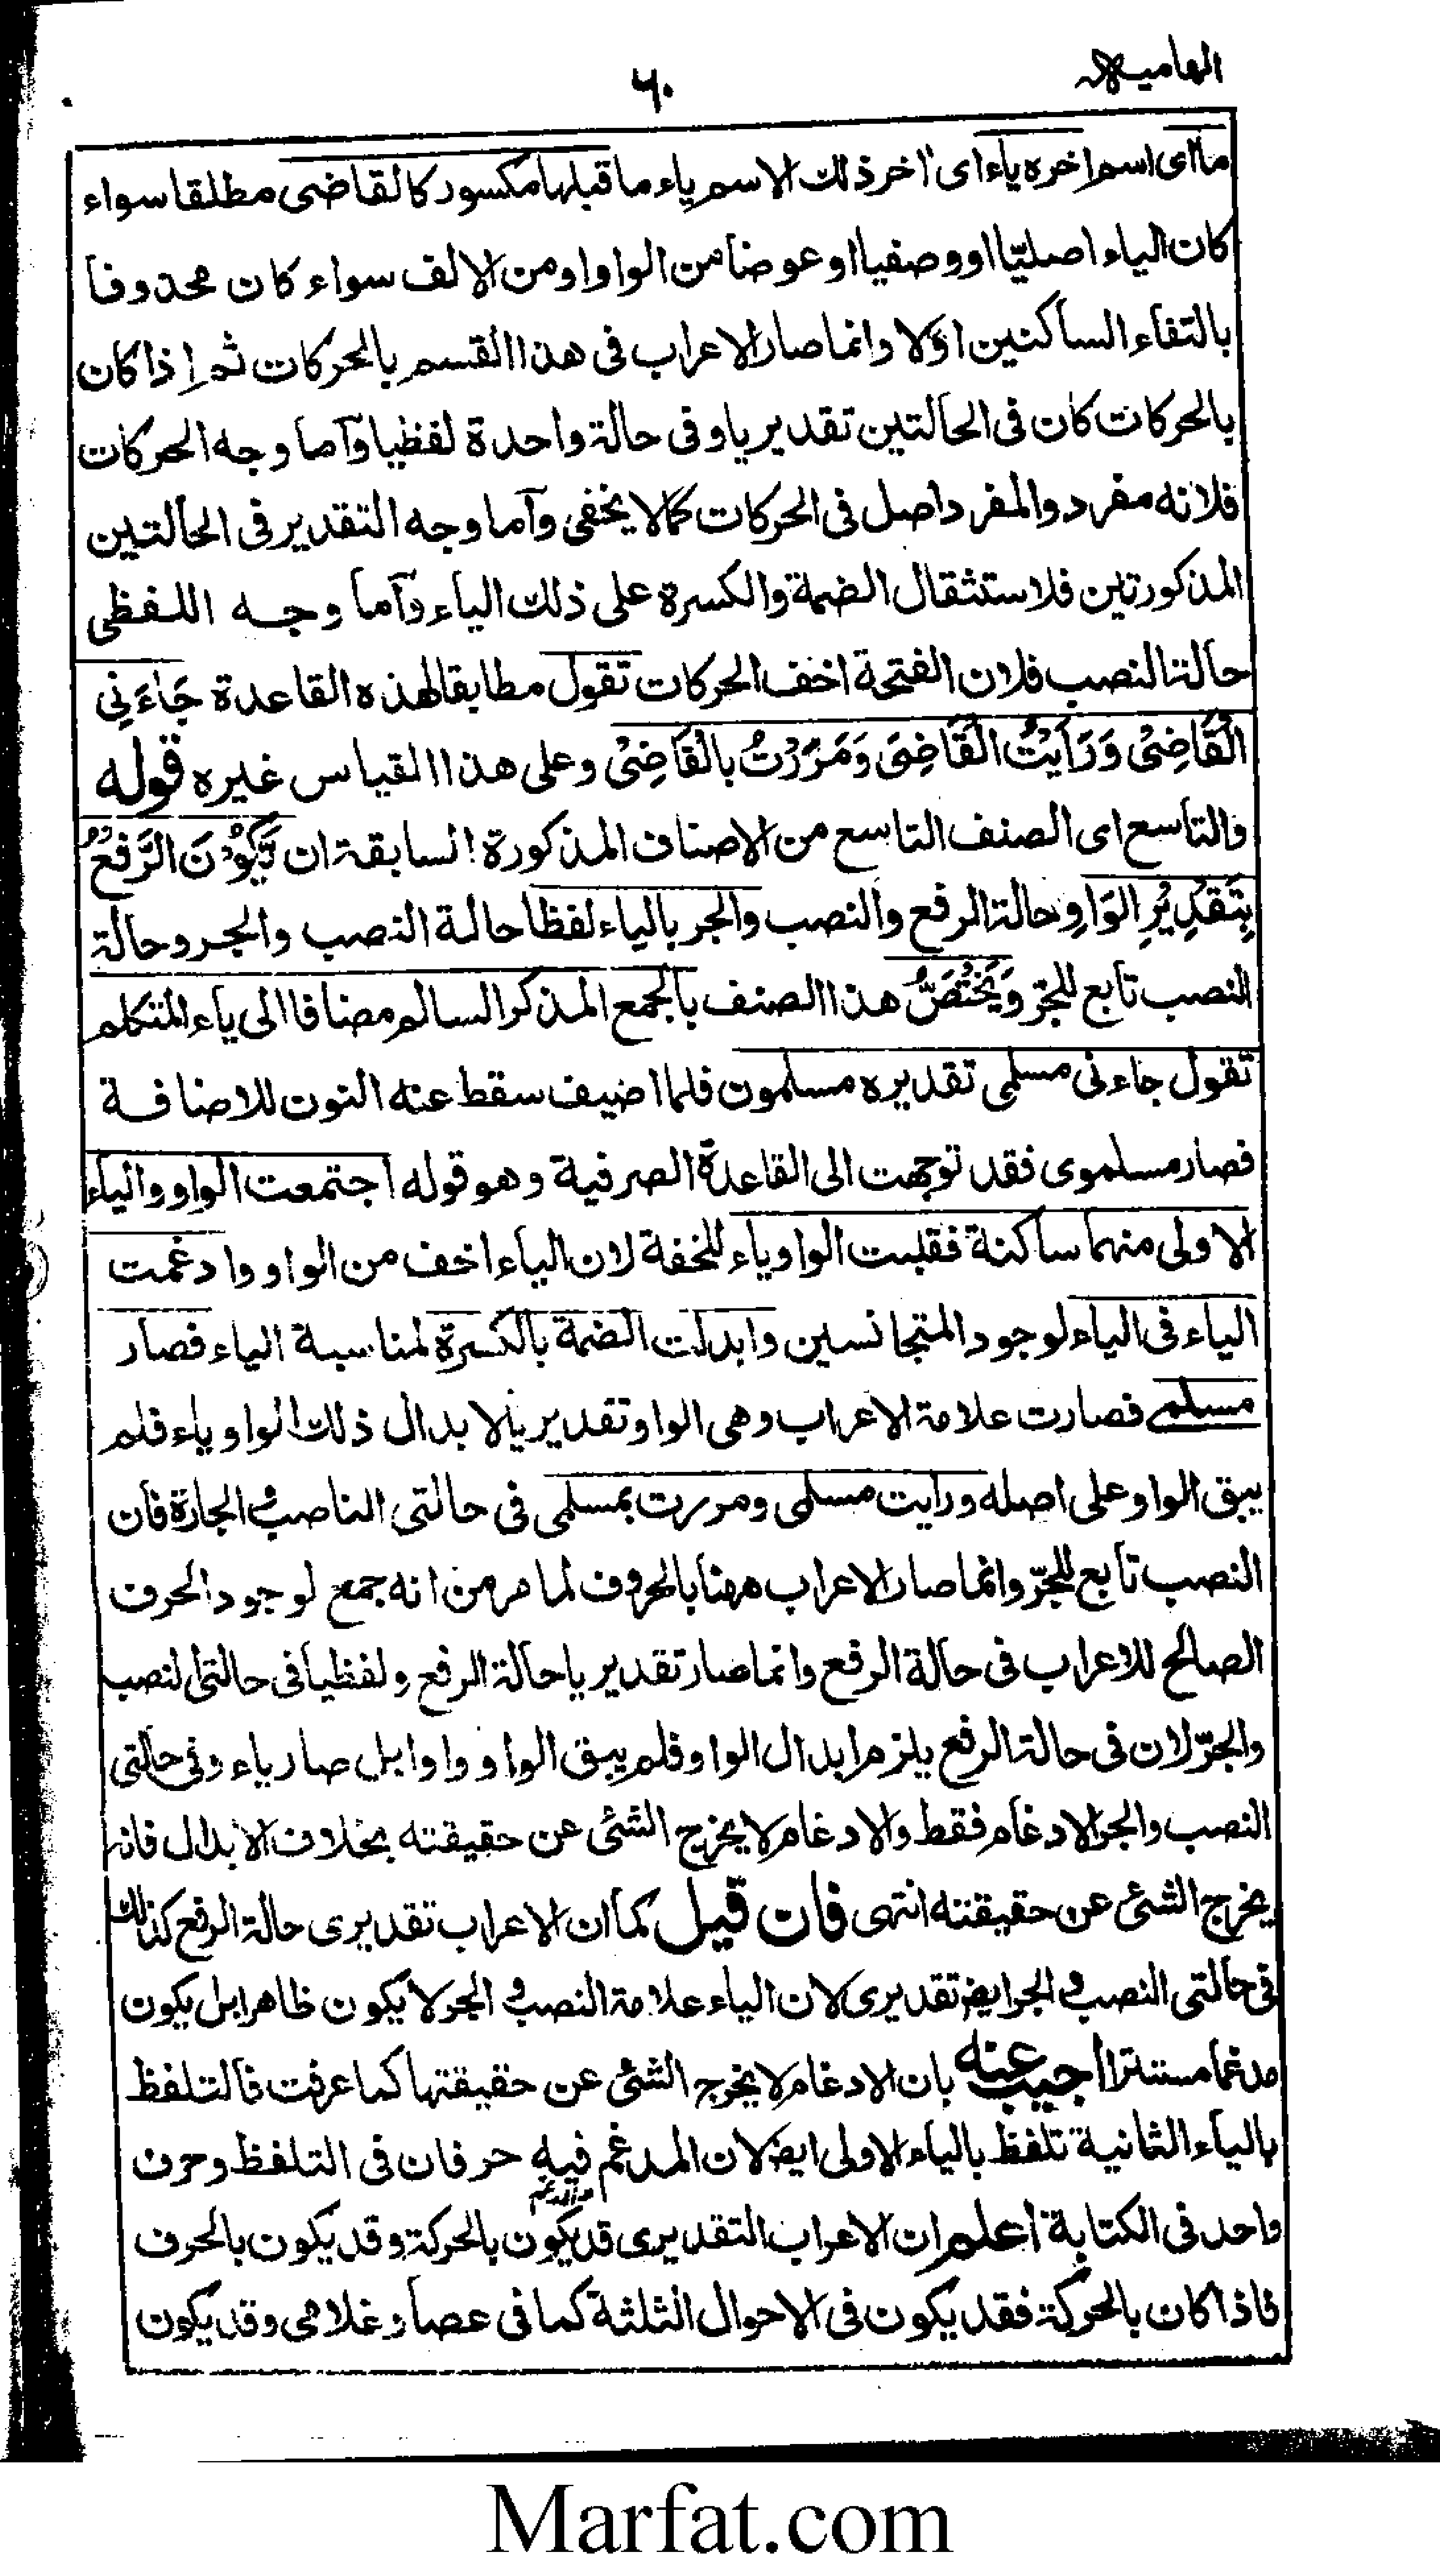 الهاميه
٦٠
ما اى اسم اخره ياء اى اخر ذلك الاسم ياء ما قبلها مكسور كالقاضى مطلقا سواء
كان الياء اصليّا او وصفيا او عوضا من الواو او من الالف سواء كان محذوفا
بالتقاء الساكنين او لا وانما صار الاعراب فى هذا القسم بالحركات ثم اذا كان
بالحركات كان فى الحالتين تقديريا وفى حالة واحدة لفظيا وآما وجه الحركات
فلانه مفرد والمفرد اصل فى الحركات كما لا يخفى وآما وجه التقدير فى الحالتين
المذكورتين فلاستثقال الضمة والكسرة على ذلك الياء وآما وجه اللفظى
حالة النصب فلان الفتحة اخف الحركات تقول مطابقا لهذه القاعدة جَاءَنِى
الْقَاضِىْ وَرَاَيْتُ الْقَاضِىَ وَمَرَرْتُ بِالْقَاضِىْ وعلى هذا القياس غيره قوله
والتاسع اى الصنف التاسع من الاصناف المذكورة السابقة ان يَّكُوْنَ الرَّفْعُ
بِتَقْدِيْرِ الْوَاوِ حالة الرفع والنصب والجر بالياء لفظا حالة النصب والجر وحالة
النصب تابع للجرّ وَيَخْتَصُّ هذا الصنف بالجمع المذكر السالم مضافا الى ياء المتكلم
تقول جاءنى مسلمى تقديره مسلمون فلما اضيف سقط عنه النون للاضافة
فصار مسلموى فقد توجهت الى القاعدة الصرفية وهو قوله اجتمعت الواو والياء
الاولى منهما ساكنة فقلبت الواو ياء للخفة لان الياء اخف من الواو وادغمت
الياء فى الياء لوجود المتجانسين وابدلت الضمة بالكسرة لمناسبة الياء فصار
مسلمى فصارت علامة الاعراب وهى الواو تقديريا لابدال ذلك الواو ياء فلم
يبق الواو على اصله ورايت مسلمى ومررت بمسلمى فى حالتى الناصب والجارة فان
النصب تابع للجرّ وانما صار الاعراب ههنا بالحروف لما مر من انه جمع لوجود الحرف
الصالح للاعراب فى حالة الرفع وانما صار تقديريا حالة الرفع ولفظيا فى حالتى النصب
والجرّ لان فى حالة الرفع يلزم ابدال الواو فلم يبق الواو واوا بل صار ياء وفى حالتى
النصب والجر الادغام فقط والادغام لا يخرج الشئ عن حقيقته بخلاف الابدال فانه
يخرج الشئ عن حقيقته انتهى فان قيل كما ان الاعراب تقديرى حالة الرفع كذلك
فى حالتى النصب والجر ايضا تقديرى لان الياء علامة النصب والجر لا يكون ظاهرا بل يكون
مدغما مستترا اجيب عنه بان الادغام لا يخرج الشئ عن حقيقتها كما عرفت فالتلفظ
بالياء الثانية تلفظ بالياء الاولى ايضا لان المدغم فيه حرفان فى التلفظ وحرف
واحد فى الكتابة اعلم ان الاعراب التقديرى قد يكون بالحركة وقد يكون بالحرف
فاذا كان بالحركة فقد يكون فى الاحوال الثلثة كما فى عصا وغلامى وقد يكون
Marfat.com